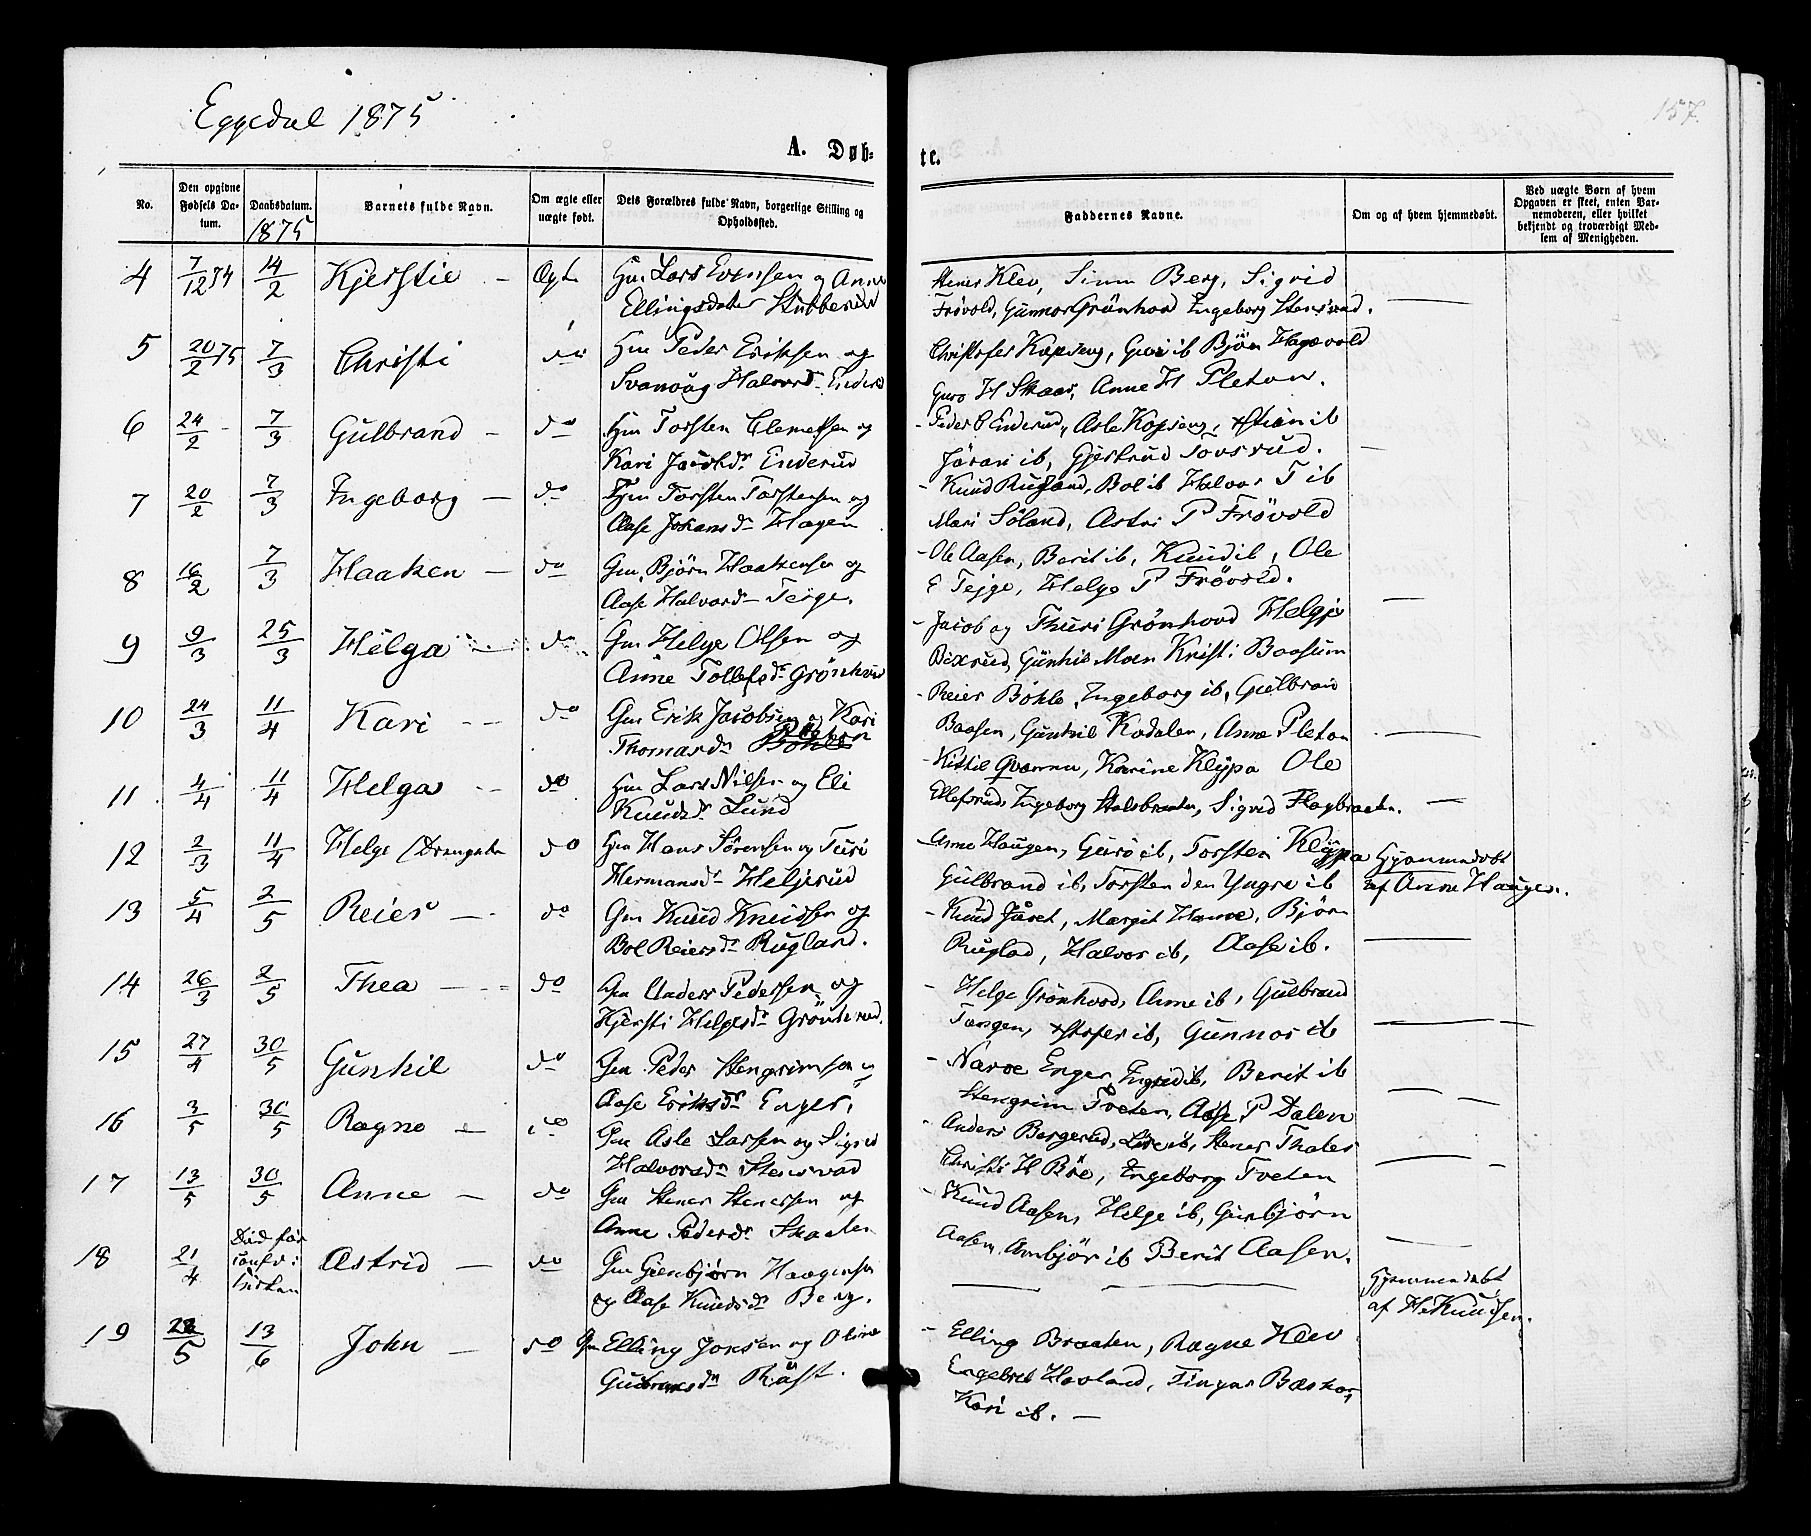 157.
Eggedal 1875
A. Døb-
te.
No.
Den opgivne Fødsels Da-tum.
Daabsdatum. 1875
Barnets fulde Navn.
Om ægte eller uægte født.
Dets Forældres fulde Navn, borgerlige Stilling og Opholdssted.
Faddernes Navne.
Om og af hvem hjemmedøbt.
Ved uægte Børn af hvem Opgaven er skeet, enten Bar-nemoderen, eller hvilket bekjendt og troværdigt Med-lem af Menigheden.
4 7/12 74 14/2 Kjerstie – Ægte Lars Evensen og Anne
Ellingsdater Stubberud
Stener Klev, Berg, Sigrid
Frövold, Gunnor Grönhovd Ingeborg Stensrud.
5 20/2 75 7/3 Christi do Peder Eriksen og
Svanoug Halvorsd. Enderud
Christofer Kopseng, Guri ib Björn Hagevold
Guro H Skaar, Anne H Pleton.
6 24/2 - 7/3 Gulbrand – do Torsten Clemetsen og
Kari Jacobdr Enderud
Peder C Enderud, Asle Kopseng, ib
Jörari ib, Gjertrud Tovsrud.
7 20/2 7/3 Ingeborg – do Torsten Torstensen og
Aase Johansdr Hagen
Knud Rugland, Bol ib Halvor T ib
Mari Söland, Astri P Frövold
8 16/2 7/3 Haaken – do Gm Björn Haakensen og
Aase Halvorsd Teige.
Ole Aasen, Berit ib, Knud ib, Ole
E Tejge, Helge P Frövold.
9 9/3 25/3 Helga do Gm Helge Olsen og
Anne Tollefsdr Grönhovd
Jacob og Thuri Grønhovd Helgje
Bixrud, Gunhil Moen Kristi Baasum
10 24/3 11/4 Kari do Gm Erik Jacobsen og Kari
Thomasdr Böhle Pleton
Reier Böhle, Ingeborg ib, Gulbran
Baasen, Gunhil Kodalen, Anne Pleton
11 4/4 11/4 Helga do Lars Nilsen og Eli
Knudsdr Lund
Kittil Qvamen, Karine Klypa Ole
Ellefsrud, Ingeborg Stalsbraaten, Sigrid Flagbraaten.
12 2/3 11/4 Helge (Drengebn do Hans Sörensen og Turi
Hermansdr Heljerud
Anne Haugen, Guro ib, Torsten Klypa
Gulbrand ib, Torsten den Yngre ib
Hjemmedøbt
af Anne Haugen.
13 5/4 2/5 Reier do Gm Knud Knudsen og
Bol Reiersdr Rugland.
Knud Jåret, Margit Hamre, Björn
Ruglad, Halvor ib, Aase ib.
14 26/3 2/5 Thea do Gm Anders Pedersen og
Kjersti Helgesdr Gröntvad.
Helge Grönhovd, Anne ib, Gulbrand
Tangen, ib, Gunnor ib
15 27/4 30/5 Gunhil do Gm Peder Stengrimsen og
Aase Eriksdr Enger.
Narve Enger, Ingrid ib, Berit ib
Stengrim Tveten, Aase P Dalen
16 3/5 30/5 Ragne – do Gm Asle Larsen og Sigrid
Halvorsdr Stensrud
Anders Bergerud, Lise ib, Stener Thales
Christi H Böe, Ingeborg Tveten
17 13/5 30/5 Anne – do Gm Stener Stenersen og
Anne Pedersdr Skaalen
Knud Aasen, Helge ib, Gunbjörn
Aasen, Ambjör ib Berit Aasen.
18 21/4 Död før
i
Kirken
Astrid – do Gm Gunbjörn Haagensen
og Aase Knudsdr Berg.
Hjemmedöbt
af H. Knudsen.
19 28/5 13/6 John – do Gm Elling Jonsen og Oline
Röst.
Elling Braaten, Ragne Klev
Engebret Hovland, Baskar,
Kari ib. –